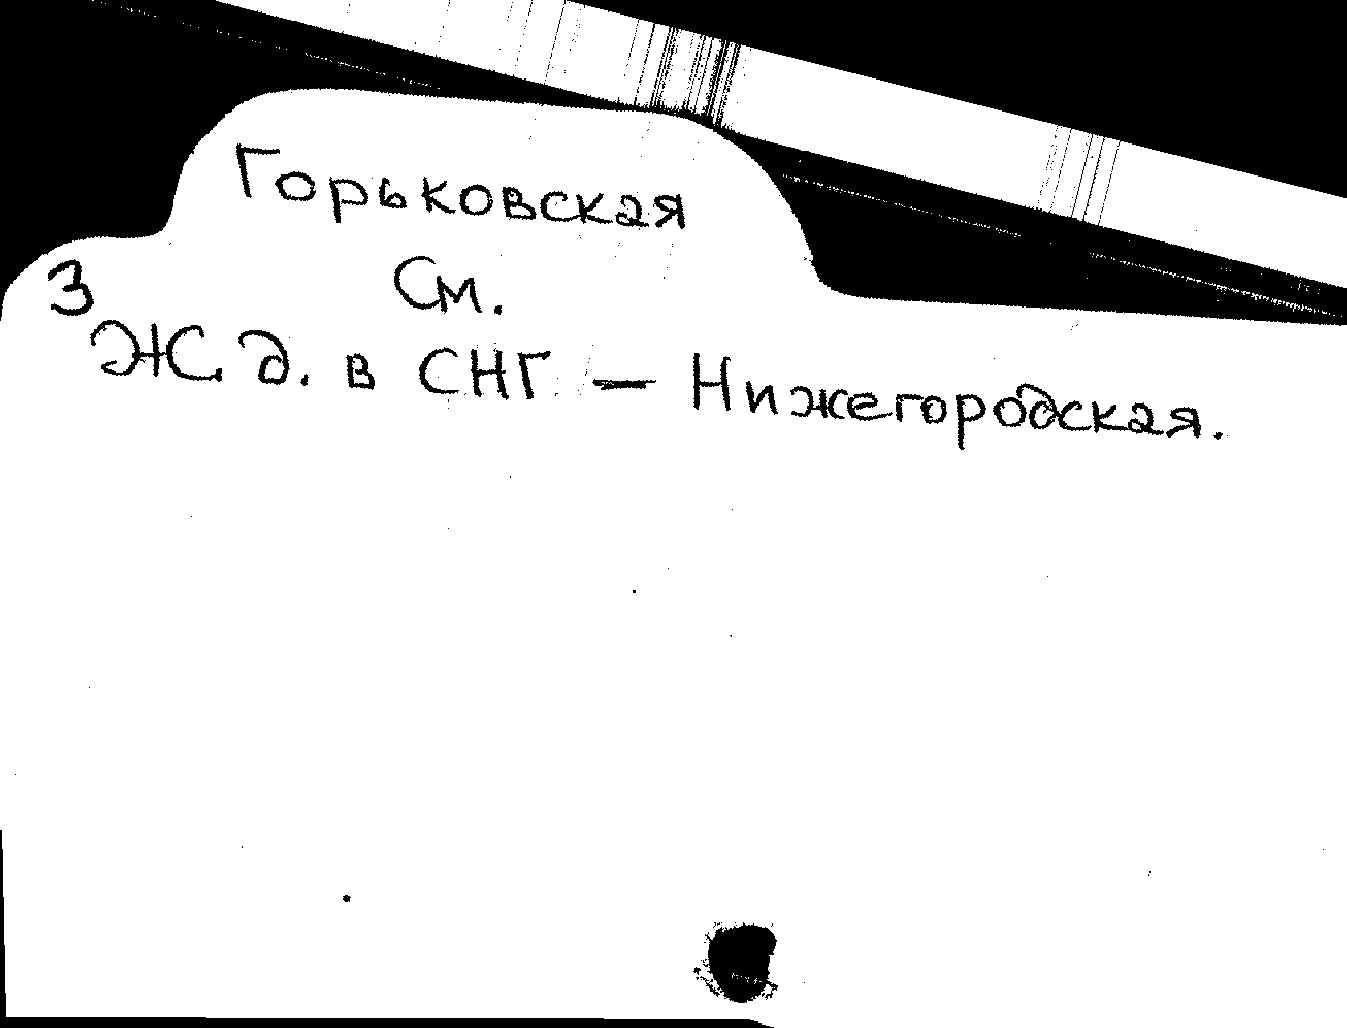 Горьковская
См.
3
Ж.д. в СНГ — Нижегородская.